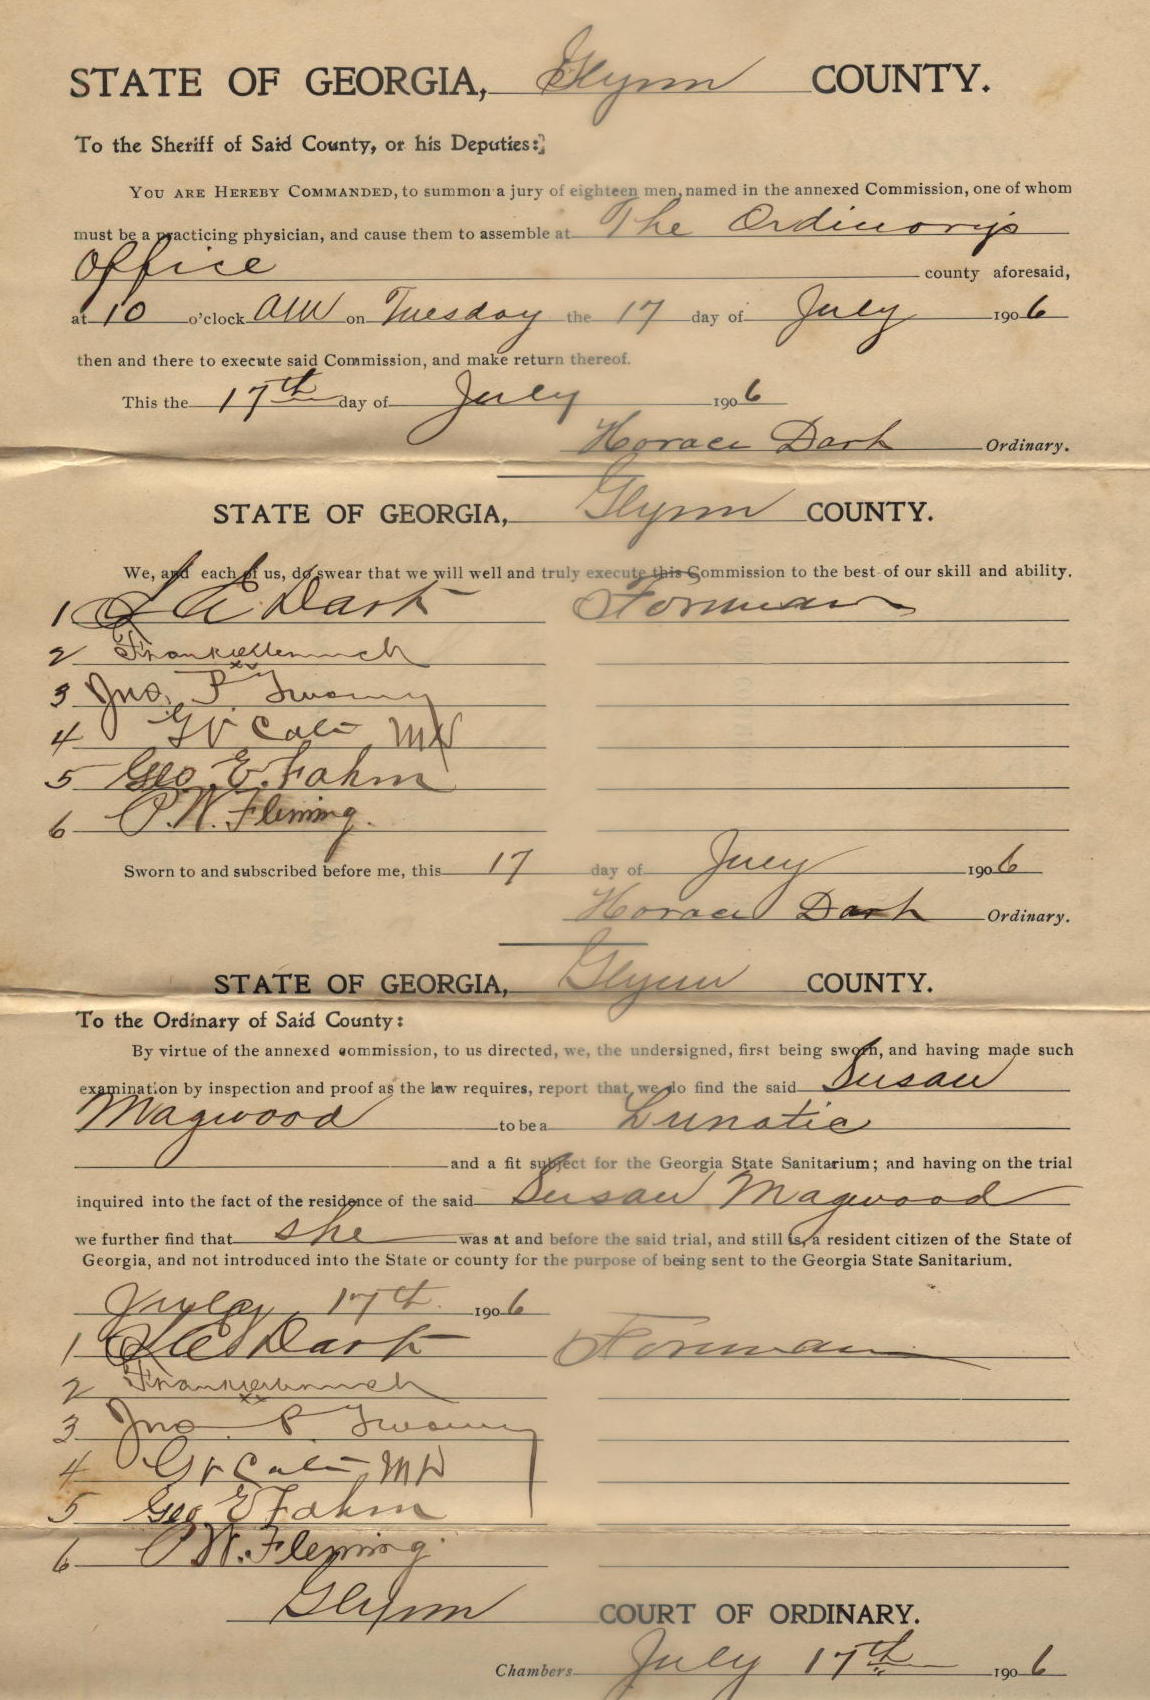 STATE OF GEORGIA, Glynn COUNTY.
To the Sheriff of Said County, or his Deputies:
YOU ARE HEREBY COMMANDED, to summon a jury of eighteen men, named in the annexed Commission, one of whom
must be a practicing physician, and cause them to assemble at The Ordinary's
Office county aforesaid,
at 10 o'clock AM on Tuesday the 17 day of July 1906
then and there to execute said Commission, and make return thereof.
This the 17th day of July 1906
Horace Dart Ordinary.
STATE OF GEORGIA, Glynn COUNTY.
We, and each of us, do swear that we will well and truly execute this Commission to the best of our skill and ability.
1 Dart Forman
2 Frank
3 Jno. P
4 MD
5 Geo. E. Fahm
6 P.W. Fleming.
Sworn to and subscribed before me, this 17 day of July 1906
Horace Dart Ordinary.
STATE OF GEORGIA, Glynn COUNTY.
To the Ordinary of Said County:
By virtue of the annexed commission, to us directed, we, the undersigned, first being sworn, and having made such
examination by inspection and proof as the law requires, report that we do find the said Susan
Magwood to be a Lunatic
and a fit subject for the Georgia State Sanitarium; and having on the trial
inquired into the fact of the residence of the said Susan Magwood
we further find that she was at and before the said trial, and still is, a resident citizen of the State of
Georgia, and not introduced into the State or county for the purpose of being sent to the Georgia State Sanitarium.
July 17th 1906
1 Dart Forman
2 Frank
3 Jno. P
4 MD
5 Geo E Fahm
6 P.W. Fleming.
Glynn COURT OF ORDINARY.
Chambers July 17th 1906